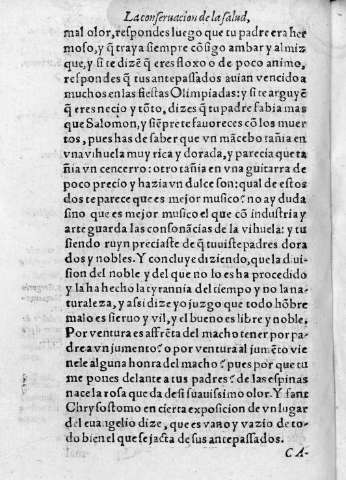 La conseruacion de la salud,
mal olor, respondes luego que tu padre era her
moso, y q̃ traya siempre cõsigo ambar y almiz
que, y si te dizẽ q̃ eres floxo o de poco animo,
respondes q̃ tus antepassados auian vencido a
muchos en las fiestas Olimpiadas: y si te arguyẽ
q̃ eres necio y tõto, dizes q̃ tu padre sabia mas
que Salomon, y siẽpre te fauoreces cõ los muer
tos, pues has de saber que vn mãcebo tañia en
vna vihuela muy rica y dorada, y parecia que ta
ñia vn cencerro: otro tañia en vna guitarra de
poco precio y hazia vn dulce son: qual de estos
dos te parece que es mejor musico? no ay duda
sino que es mejor musico el que cõ industria y
arte guarda las consonãcias de la vihuela: y tu
siendo ruyn preciaste de q̃ tuuiste padres dora
dos y nobles. Y concluye diziendo, que la diui
sion del noble y del que no lo es ha procedido
y la ha hecho la tyrannia del tiempo y no la na-
turaleza, y assi dize yo juzgo que todo hõbre
malo es sieruo y vil, y el bueno es libre y noble.
Por ventura es affrẽta del macho tener por pa-
dre a vn jumento? o por ventura al jumẽto vie
nele alguna honra del macho? pues por que tu
me pones delante a tus padres? de las espinas
nace la rosa que da de si suauissimo olor. Y sant
Chrysostomo en cierta exposicion de vn lugar
del euangelio dize, que es vano y vazio de to-
do bien el que se jacta de sus antepassados.
CA-